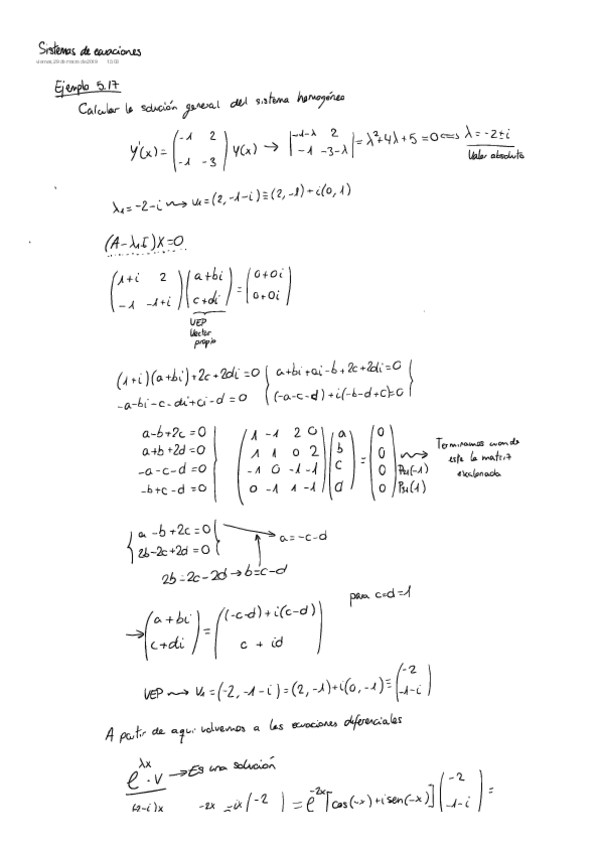 Sistemas de ecuaciones
viernes, 29 de marzo de 2019 13:05
Ejemplo 5.17
Calcular la solución general del sistema homogéneo
Y'(x) = (-1 2 / -1 -3) Y(x) → |-1-λ 2 / -1 -3-λ| = λ²+4λ+5 = 0 ⟺ λ = -2±i
Valor absoluto
λ₁ = -2-i ⇝ v₁ = (2, -1-i) ≡ (2, -1) + i(0, 1)
(A-λ₁I)X=0
(1+i 2 / -1 -1+i) (a+bi / c+di) = (0+0i / 0+0i)
VEP
Vector
propio
(1+i)(a+bi)+2c+2di=0 { a+bi+ai-b+2c+2di=0 }
-a-bi-c-di+ci-d=0 { (-a-c-d)+i(-b-d+c)=0 }
a-b+2c=0 (1 -1 2 0) (a) (0)
a+b+2d=0 (1 1 0 2) (b) = (0) ⇝ Terminamos cuando
-a-c-d=0 (-1 0 -1 -1) (c) (0) P₃₁(-1) este la matriz
-b+c-d=0 (0 -1 1 -1) (d) (0) P₃₁(1) escalonada
{ a-b+2c=0 } → a=-c-d
{ 2b-2c+2d=0 }
2b=2c-2d → b=c-d
para c=d=1
→ (a+bi / c+di) = ((-c-d)+i(c-d) / c + id)
VEP ⇝ v₁ = (-2, -1-i) = (2, -1)+i(0, -1) ≡ (-2 / -1-i)
A partir de aquí volvemos a las ecuaciones diferenciales
e^λx · v → Es una solución
(2-i)x -2x -ix (-2 ) = e^-2x [cos(-x)+i sen(-x)] (-2 / -1-i) =